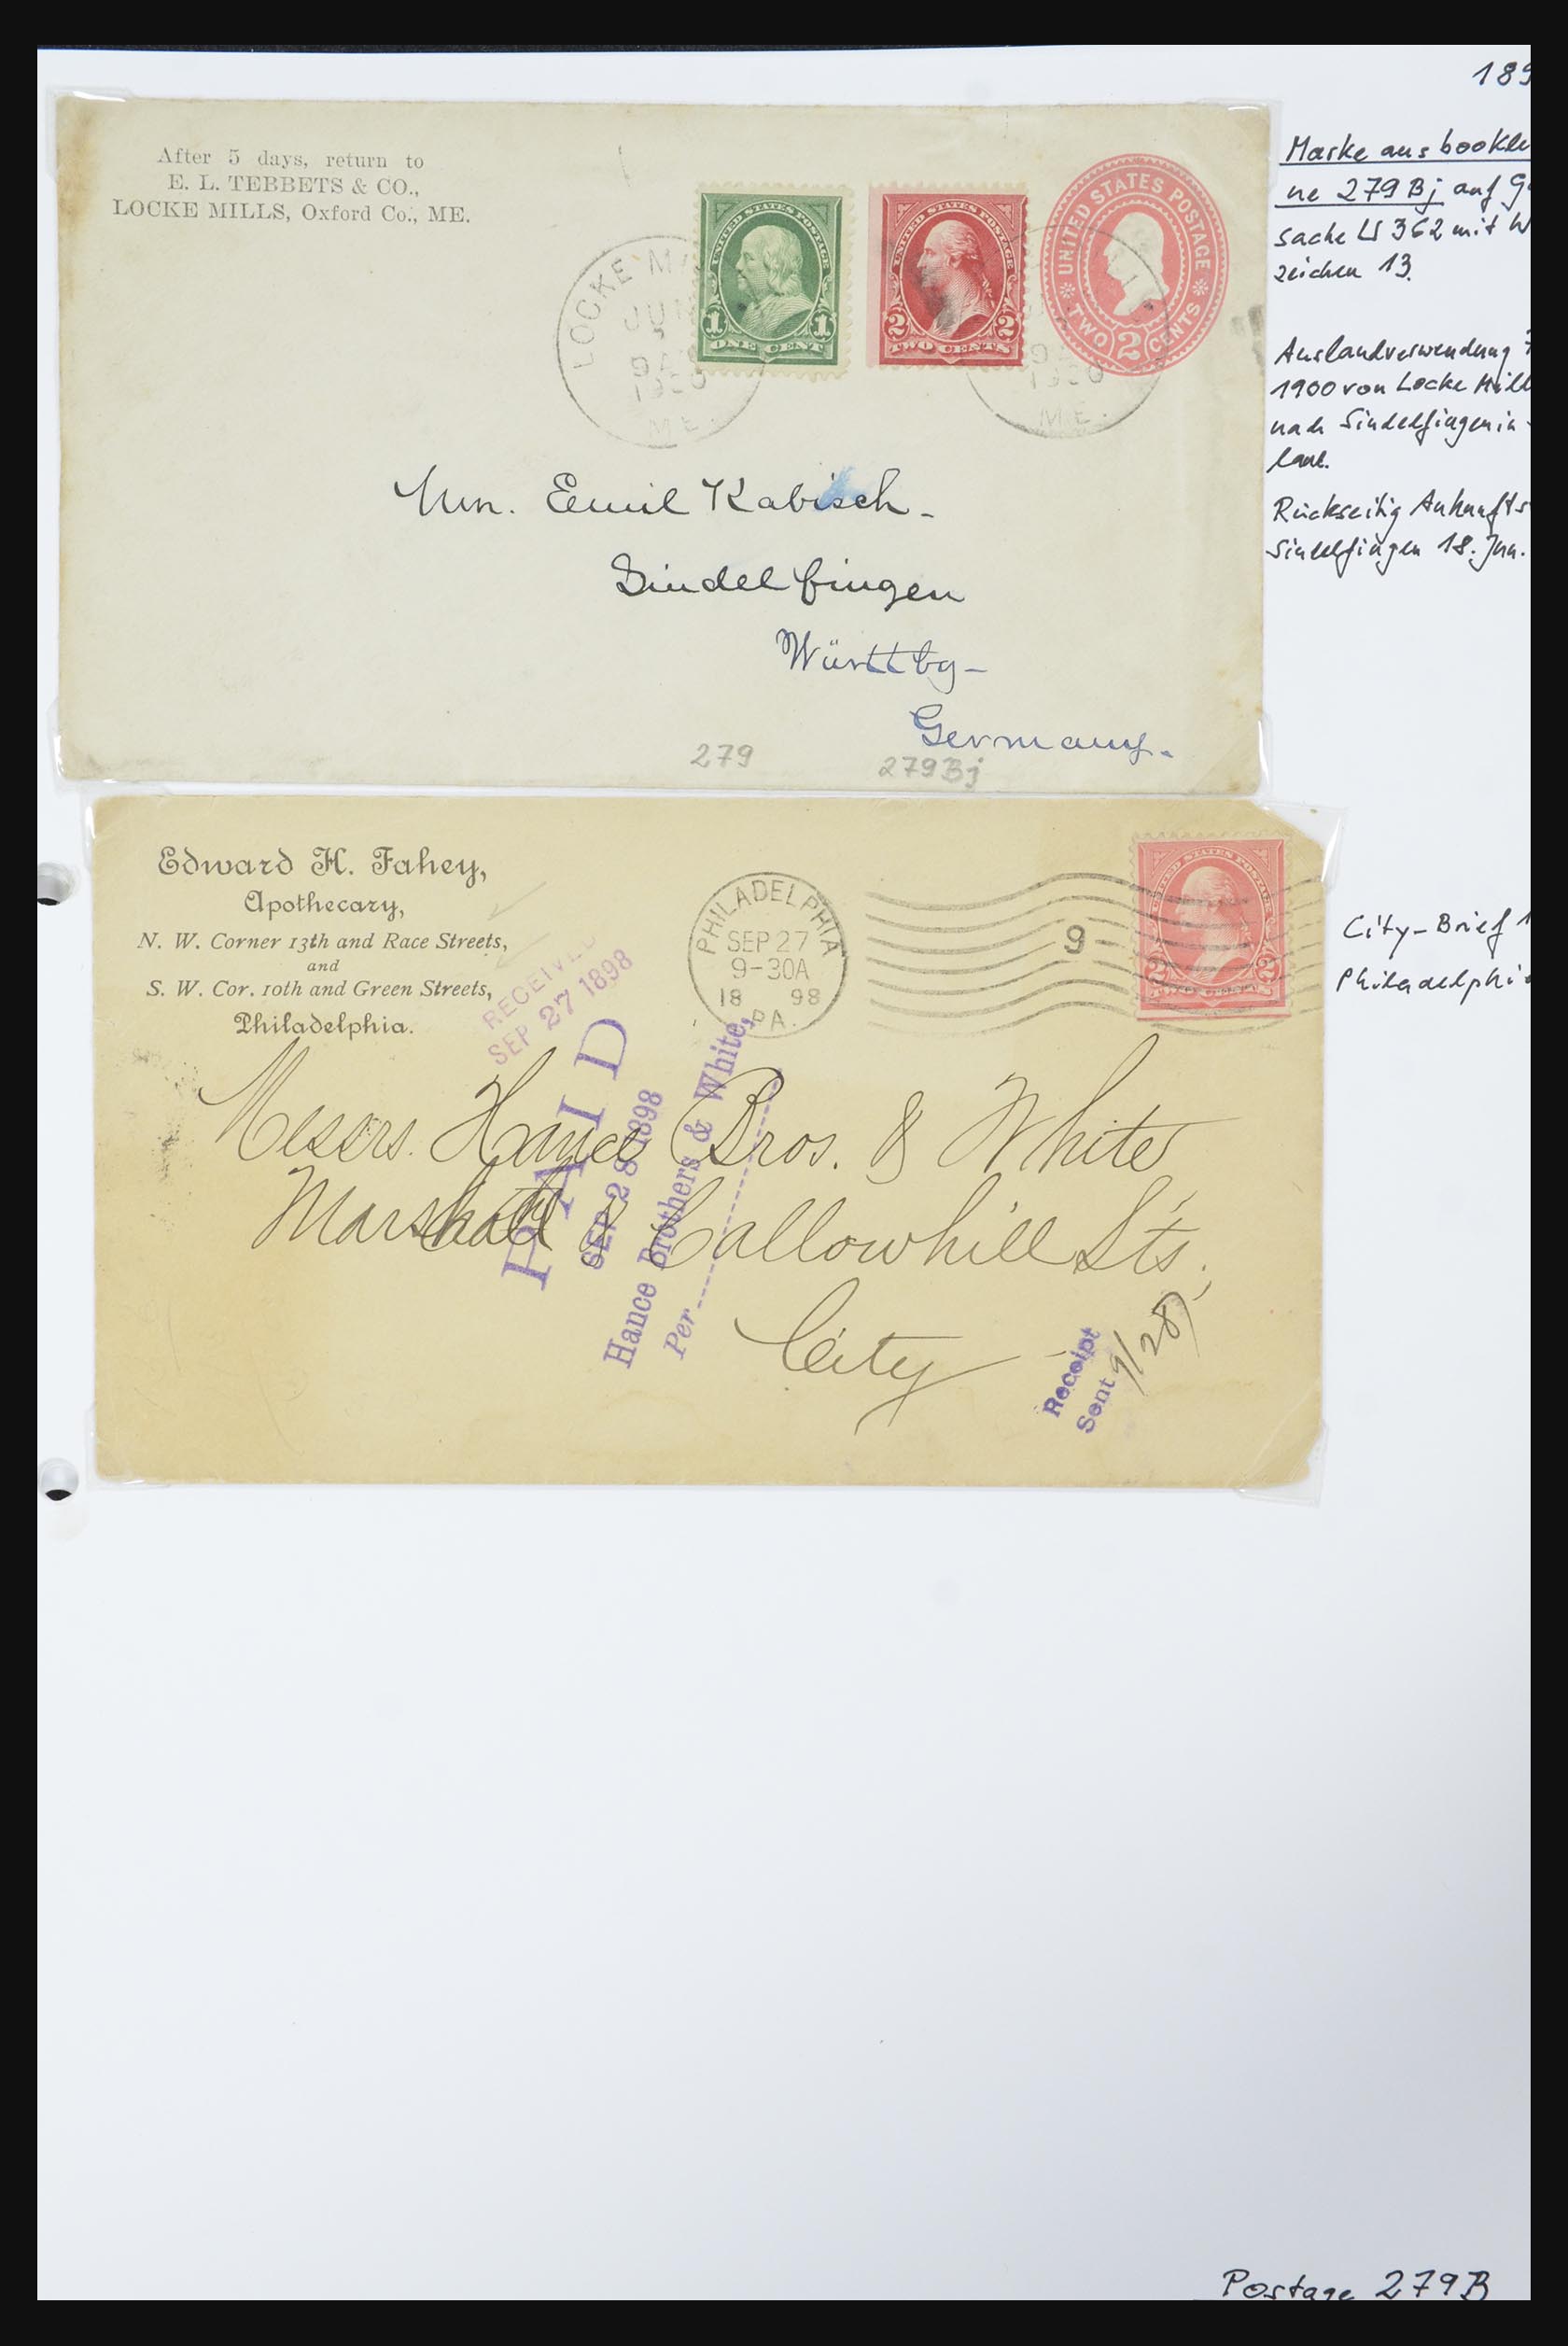 189
After 5 days, return to
E. L. TEBBETS & CO.,
LOCKE MILLS, Oxford Co., ME.
LOCKE MI
JUN
9A
1900
ME.
UNITED STATES POSTAGE
1 1
ONE CENT
UNITED STATES POSTAGE
2 2
TWO CENTS
UNITED STATES POSTAGE
TWO 2 CENTS
1900
ME.
Marke aus bookle
ne 279Bj auf G
sache U 362 mit W
zeichen 13.
Auslandverwendung 7
1900 von Locke Mill
nach Sindelfingen in
land.
Rückseitig Ankunfts
Sindelfingen 18. Jun.
Mr. Emil Kabisch.
Sindelfingen
Württbg
Germany.
279
279Bj
Edward H. Fahey,
Apothecary,
N. W. Corner 13th and Race Streets,
and
S. W. Cor. 10th and Green Streets,
Philadelphia.
RECEIVED
SEP 27 1898
PHILADELPHIA
SEP 27
9-30A
18 98
PA.
9
UNITED STATES POSTAGE
2 2
TWO CENTS
City-Brief 1
Philadelphia
PAID
SEP 28 1898
Hance Brothers & White,
Per
Messrs. Hance Bros. & White
Marshall & Callowhill Sts.
City
Receipt
Sent 9/28
Postage 279B